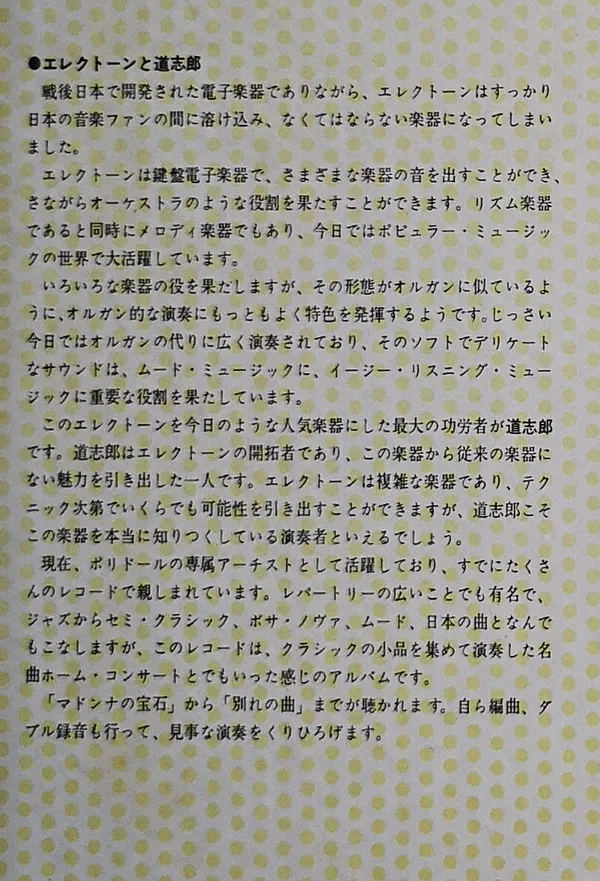 ●エレクトーンと道志郎
戦後日本で開発された電子楽器でありながら、エレクトーンはすっかり
日本の音楽ファンの間に溶け込み、なくてはならない楽器になってしまい
ました。
エレクトーンは鍵盤電子楽器で、さまざまな楽器の音を出すことができ、
さながらオーケストラのような役割を果たすことができます。リズム楽器
であると同時にメロディ楽器でもあり、今日ではポピュラー・ミュージッ
クの世界で大活躍しています。
いろいろな楽器の役を果たしますが、その形態がオルガンに似ているよ
うに、オルガン的な演奏にもっともよく特色を発揮するようです。じっさい
今日ではオルガンの代りに広く演奏されており、そのソフトでデリケート
なサウンドは、ムード・ミュージックに、イージー・リスニング・ミュー
ジックに重要な役割を果たしています。
このエレクトーンを今日のような人気楽器にした最大の功労者が道志郎
です。道志郎はエレクトーンの開拓者であり、この楽器から従来の楽器に
ない魅力を引き出した一人です。エレクトーンは複雑な楽器であり、テク
ニック次第でいくらでも可能性を引き出すことができますが、道志郎こそ
この楽器を本当に知りつくしている演奏者といえるでしょう。
現在、ポリドールの専属アーチストとして活躍しており、すでにたくさ
んのレコードで親しまれています。レパートリーの広いことでも有名で、
ジャズからセミ・クラシック、ボサ・ノヴァ、ムード、日本の曲となんで
もこなしますが、このレコードは、クラシックの小品を集めて演奏した名
曲ホーム・コンサートとでもいった感じのアルバムです。
「マドンナの宝石」から「別れの曲」までが聴かれます。自ら編曲、ダ
ブル録音も行って、見事な演奏をくりひろげます。